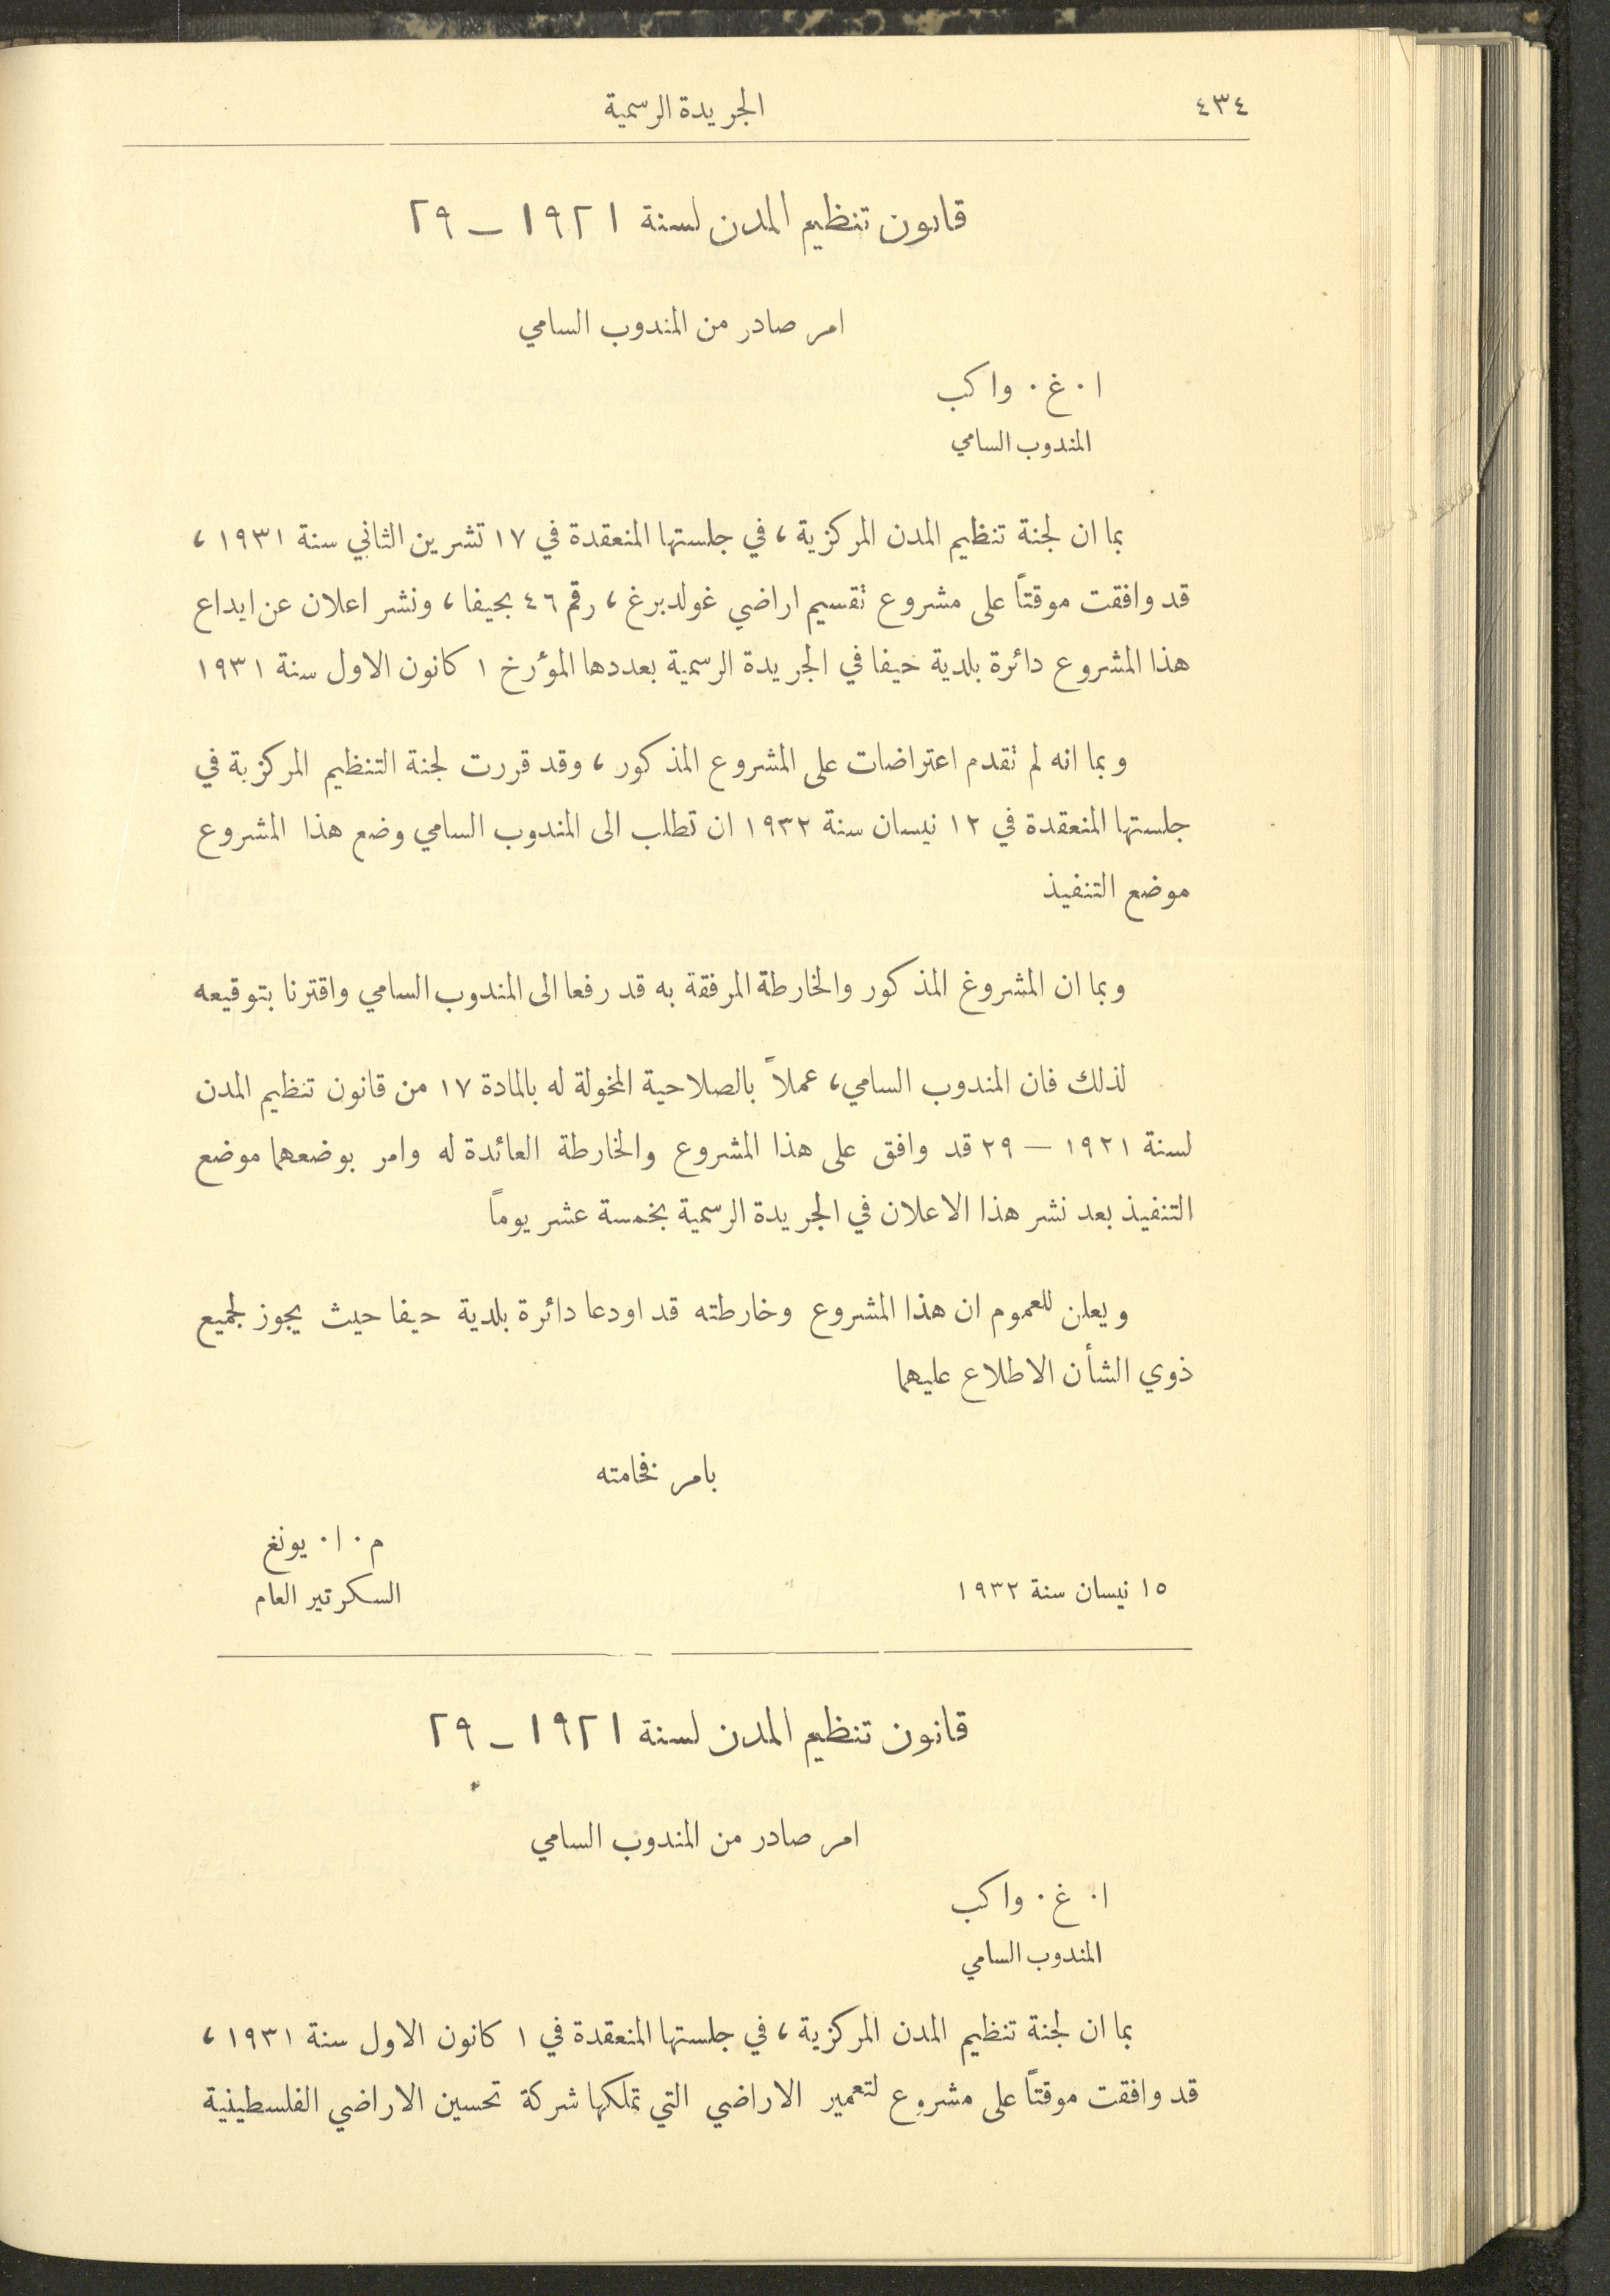 ٤٣٤
الجريدة الرسمية
قانون تنظيم المدن لسنة ١٩٢١ ــ ٢٩
امر صادر من المندوب السامي
ا٠ غ٠ واكب
المندوب السامي
بما ان لجنة تنظيم المدن المركزية، في جلستها المنعقدة في ١٧ تشرين الثاني سنة ١٩٣١،
قد وافقت موقتاً على مشروع تقسيم اراضي غولدبرغ، رقم ٤٦ بحيفا، ونشر اعلان عن ايداع
هذا المشروع دائرة بلدية حيفا في الجريدة الرسمية بعددها المؤرخ ١ كانون الاول سنة ١٩٣١
وبما انه لم تقدم اعتراضات على المشروع المذكور، وقد قررت لجنة التنظيم المركزية في
جلستها المنعقدة في ١٢ نيسان سنة ١٩٣٢ ان تطلب الى المندوب السامي وضع هذا المشروع
موضع التنفيذ
وبما ان المشروغ المذكور والخارطة المرفقة به قد رفعا الى المندوب السامي واقترنا بتوقيعه
لذلك فان المندوب السامي، عملاً بالصلاحية المخولة له بالمادة ١٧ من قانون تنظيم المدن
لسنة ١٩٢١ — ٢٩ قد وافق على هذا المشروع والخارطة العائدة له وامر بوضعهما موضع
التنفيذ بعد نشر هذا الاعلان في الجريدة الرسمية بخمسة عشر يوماً
ويعلن للعموم ان هذا المشروع وخارطته قد اودعا دائرة بلدية حيفا حيث يجوز لجميع
ذوي الشأن الاطلاع عليهما
بامر فخامته
م٠ ا٠ يونغ
السكرتير العام
١٥ نيسان سنة ١٩٣٢
قانون تنظيم المدن لسنة ١٩٢١ ــ ٢٩
امر صادر من المندوب السامي
ا٠ غ٠ واكب
المندوب السامي
بما ان لجنة تنظيم المدن المركزية، في جلستها المنعقدة في ١ كانون الاول سنة ١٩٣١،
قد وافقت موقتاً على مشروع لتعمير الاراضي التي تملكها شركة تحسين الاراضي الفلسطينية